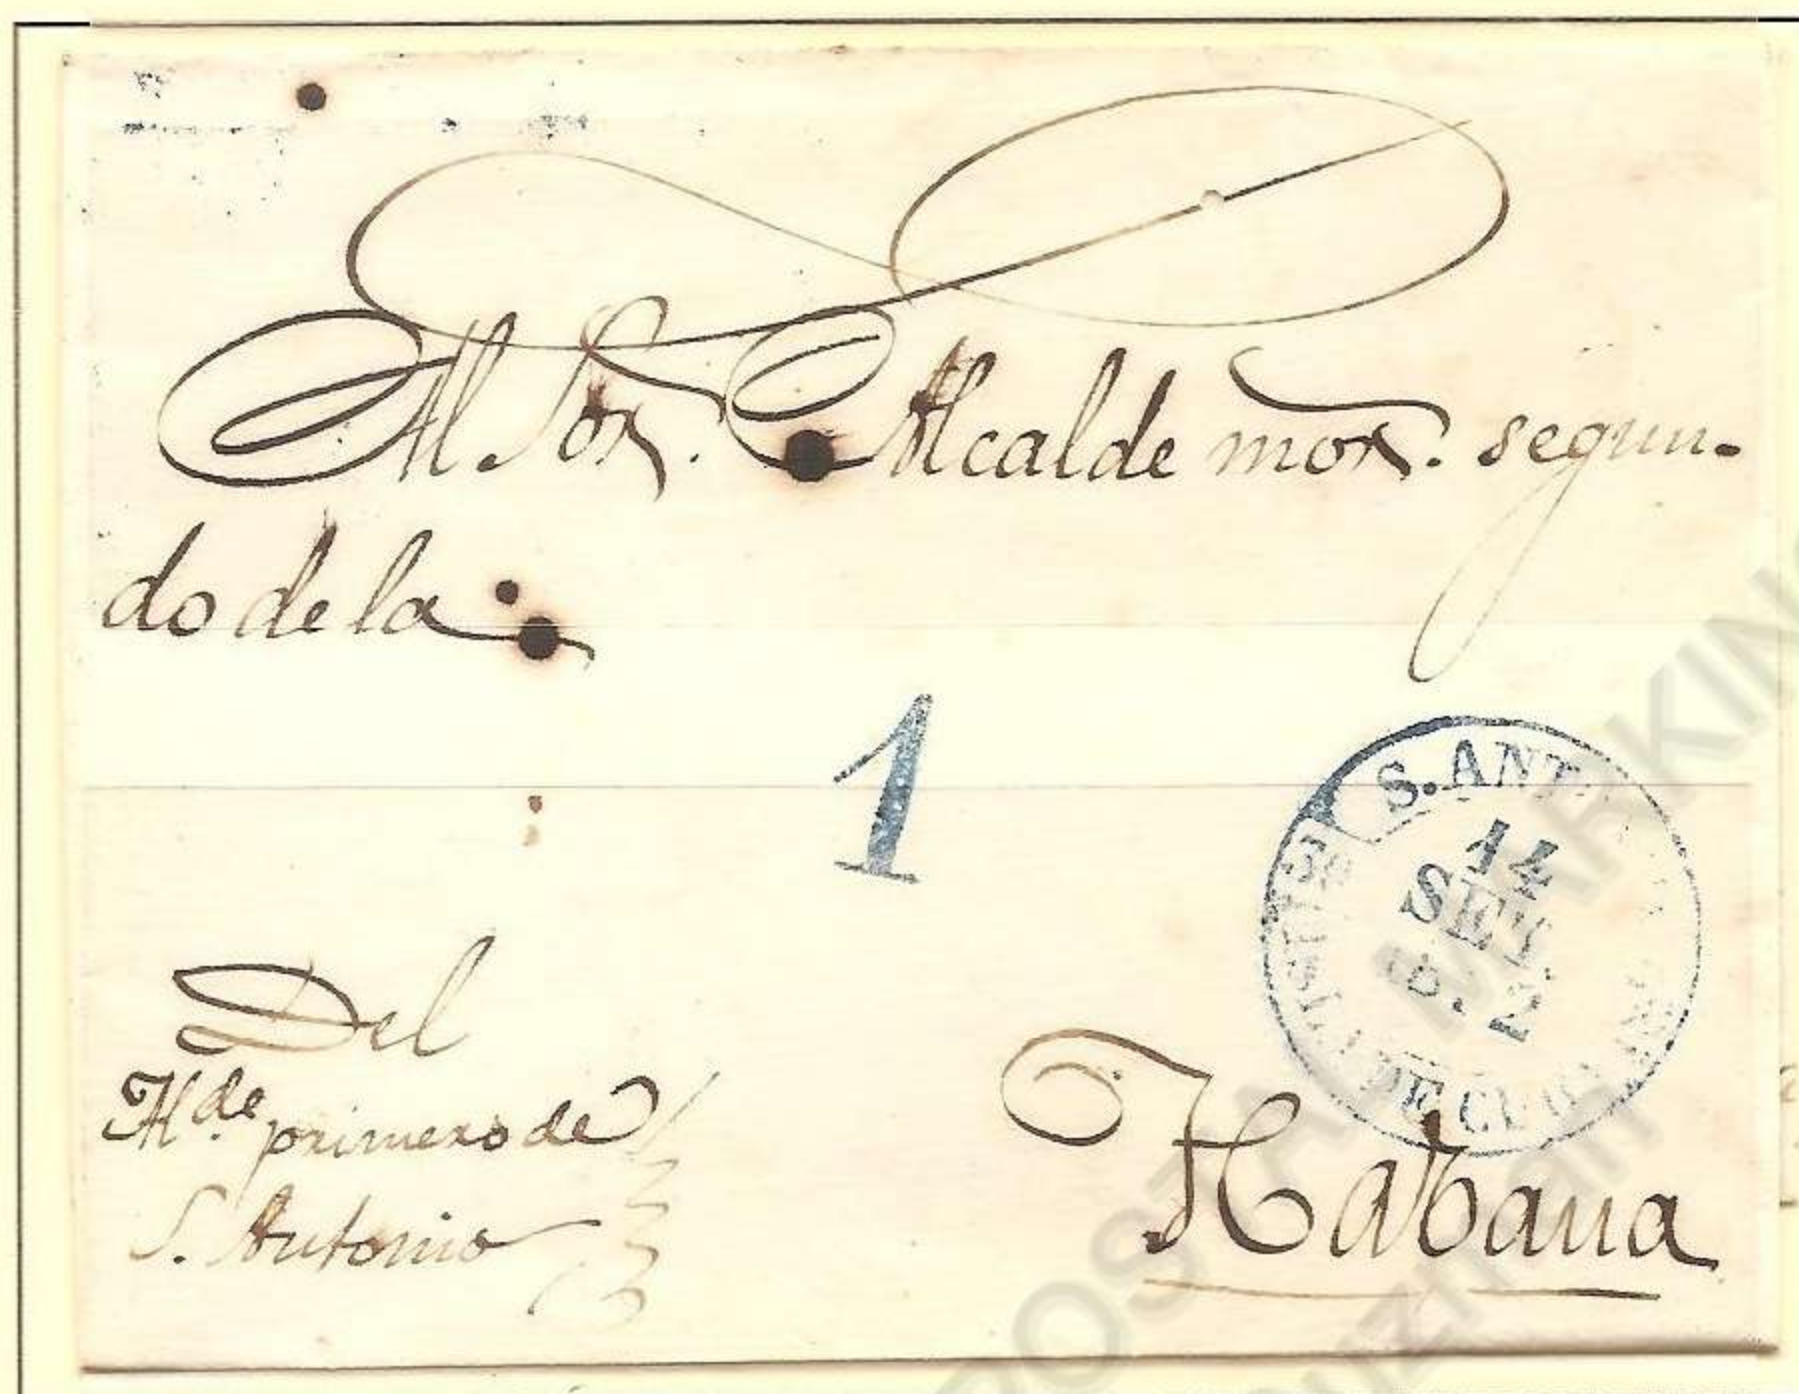 Al Sor. Alcalde mor. segun-
do de la
1
S. ANT
14
SET
2
DE CUBA
Del
Alde. primero de
S. Antonio
Habana